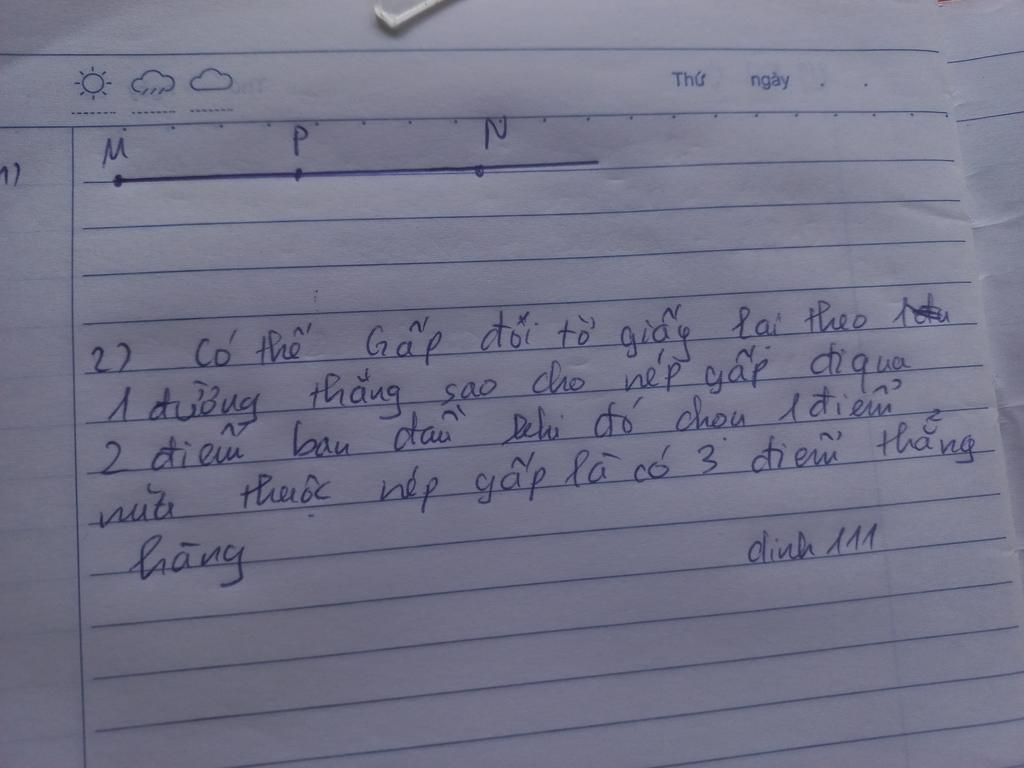 Thứ ngày . .
1)
M P N
2) Có thể Gấp đối tờ giấy lại theo
1 đường thẳng sao cho nếp gấp đi qua
2 điểm ban đầu khi đó chọn 1 điểm
nữa thuộc nếp gấp là có 3 điểm thẳng
hàng
dinh 111